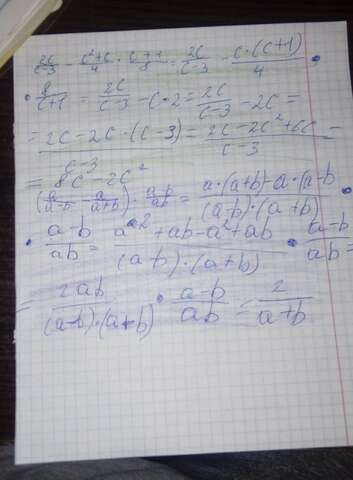 2c/c-3 - c²+c/4 : c+1/8 = 2c/c-3 - c·(c+1)/4 ·
· 8/c+1 = 2c/c-3 - c·2 = 2c/c-3 - 2c =
= 2c-2c·(c-3)/c-3 = 2c-2c²+6c/c-3 =
= 8c-2c²/c-3
(a/a-b - a/a+b) · a-b/ab = a·(a+b)-a·(a-b/(a-b)·(a+b) ·
· a-b/ab = a²+ab-a²+ab/(a-b)·(a+b) · a-b/ab =
= 2ab/(a-b)·(a+b) · a-b/ab = 2/a+b